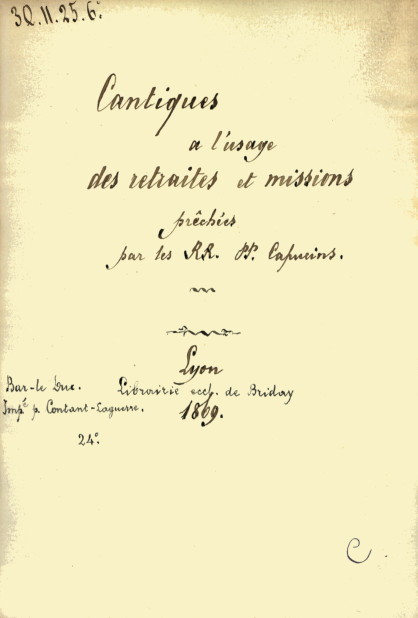 3Q.11.25.6°
Cantiques
a l'usage
des retraites et missions
prêchées
par les RR. PP. Capucins.
Lyon
Librairie eccl. de Briday
1869.
Bar-le Duc.
Impé p. Contant-Laguerre.
24°
C.